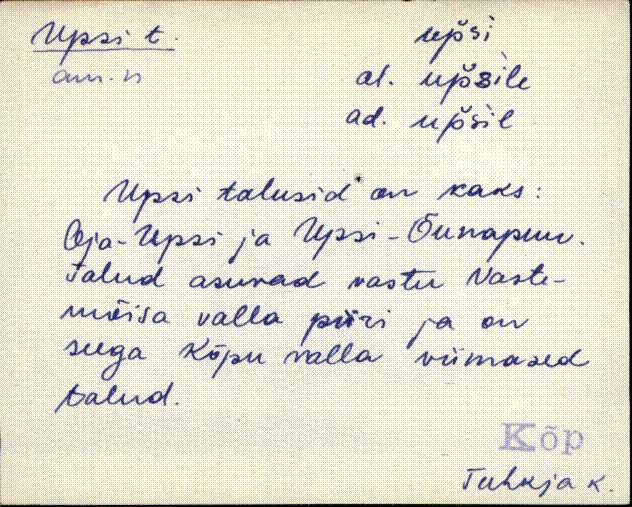 Upsi t.
am. n
up̆si
al. up̆sile
ad. up̆sil
Upsi talusid on kaks:
Oja-Upsi ja Upsi-Õunapuu.
Talud asuvad vastu Vaste-
mõisa valla piiri ja on
seega Kõpu valla viimased
talud.
Kõp
Tuhuja k.